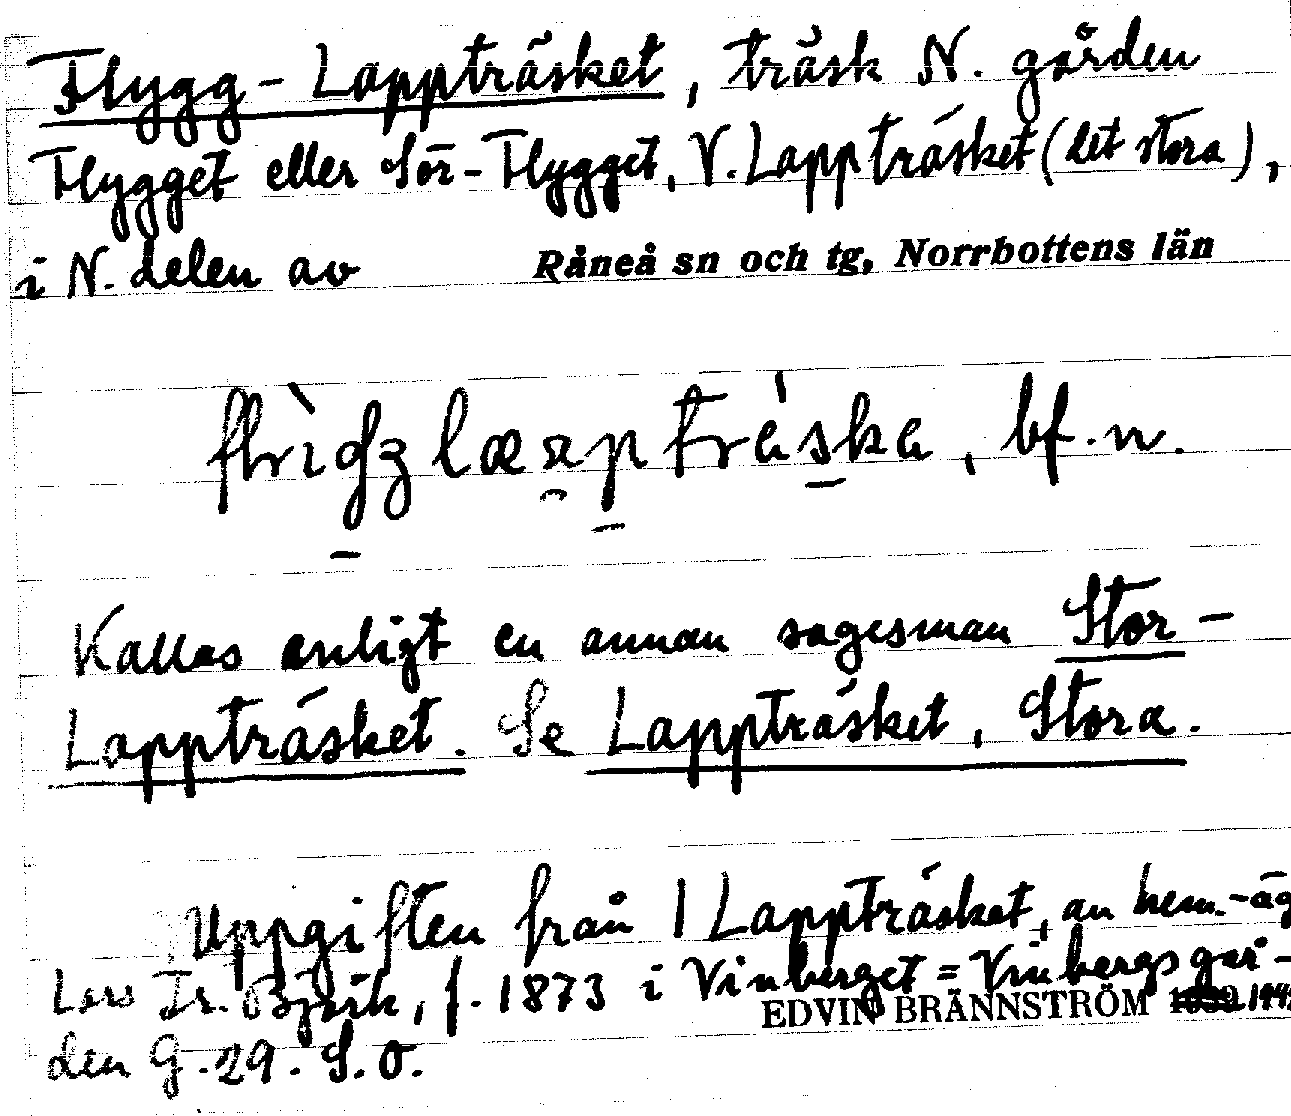 Flygg-Lappträsket, träsk N. gården
Flygget eller Sör-Flygget, V. Lappträsket (det stora),
i N. delen av Råneå sn och tg, Norrbottens län
bf. n.
Kallas enligt en annan sagesman Stor-
Lappträsket. Se Lappträsket, Stora.
Uppgiften från 1 Lappträsket, av hem.-äg
Lars Fr. Björk, f. 1873 i Vinberget = Vinbergsgår-
EDVIN BRÄNNSTRÖM
den G. 29. S. O.